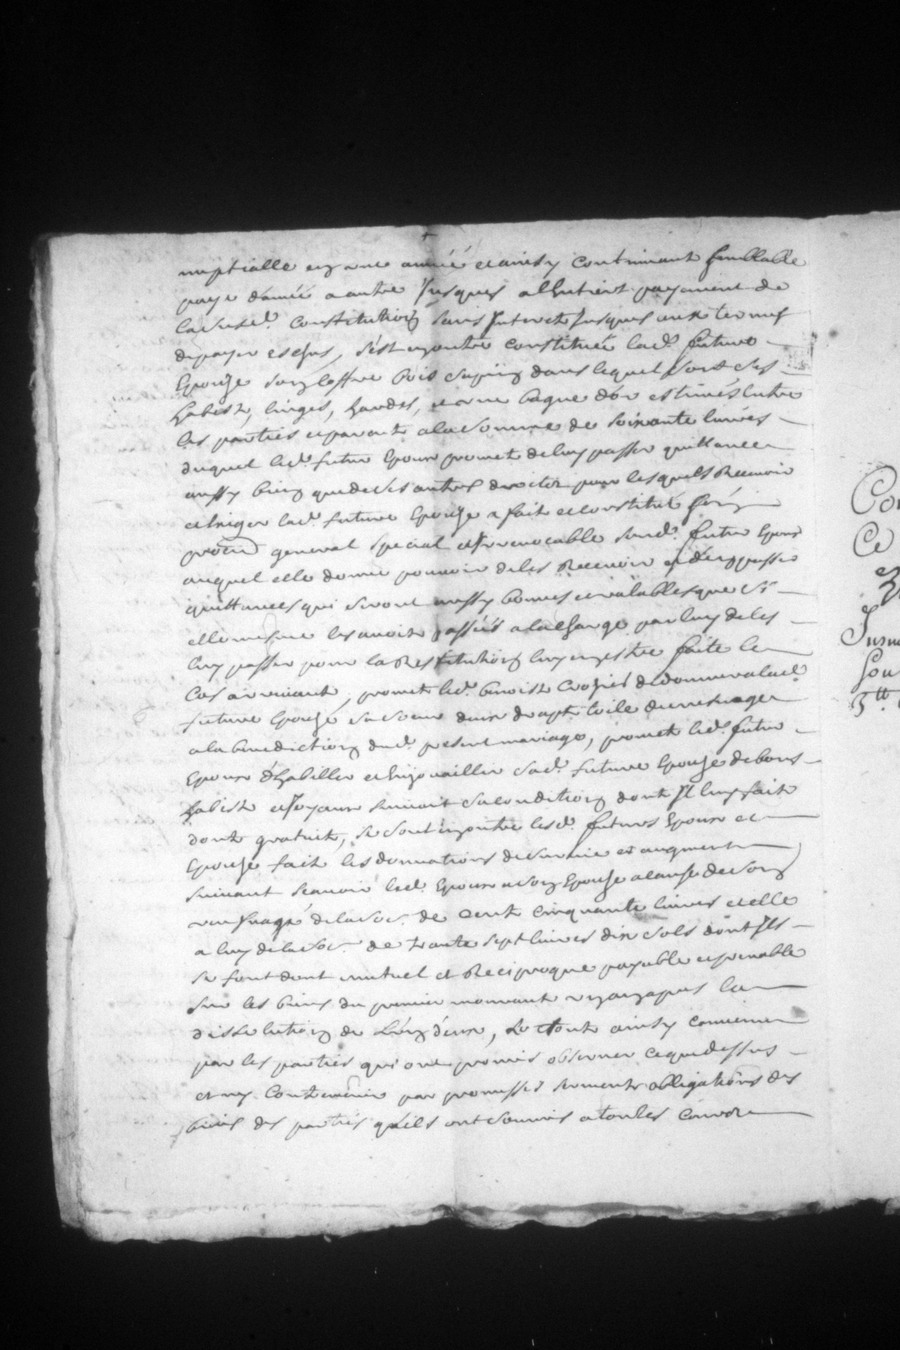 nuptialle en une année et ainsy continuant semblable
paye d'année a autre jusques a l'entiere payement de
la susd. constitution sans interets jusques aux termes
de payer eschus, s'est en outre constitué lad. future
Epouze son coffre bois sapin dans lequel sont ses
habist, linges, hardes, et une bague d'or estimés entre
les parties et parents a la somme de soixante livres
duquel led. futur Epoux promet de luy passer quittance
aussy bien que de ses autres droicts pour lesquels Recevoir
et exiger lad. future Epouze a fait et constitué son
procur general special et irrevocable sond. futur Epoux
auquel elle donne pouvoir de les Recevoir et d'en passer
quittances qui seront aussy bonnes et valables que si
elle mesme les avoit passées a la charge par luy de les
luy passer pour la Restitution luy en estre faite le
cas arrivant, promet led. benoist de donner a lad.
future Epouze sa soeur deux draps toile de menager
a la benediction dud. present mariage, promet led. futur
Epoux d'habiller et enjouailler sad. future Epouze de bons
habist et joyaux suivant sa condition dont il luy fait
dont gratuit, se sont en outre lesd. futurs Epoux et
Epouze fait les donnations de survie et augment
suivant scavoir led. Epoux a son Epouze a cause de son
de la so. de cent cinquante livres et elle
a luy de la so. de trante sept livres dix sols dont ils
se font dont mutuel et Reciproque payable et prenable
sur les biens du premier mourant apres la
dissolution de l'un d'eux, Le tout ainsy convenu
par les parties qui ont promis observer ce que dessus
et ny contrevenir par promesses serments obligations des
biens des parties qu'ils ont soumis a toutes cours
Ce